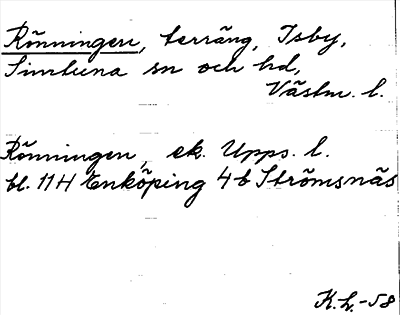 Rönningen, terräng, Isby,
Simtuna sn och hd,
Västm. l.
Rönningen, ek. Upps. l.
bl. 11H Enköping 4b Strömsnäs
K.h.-58